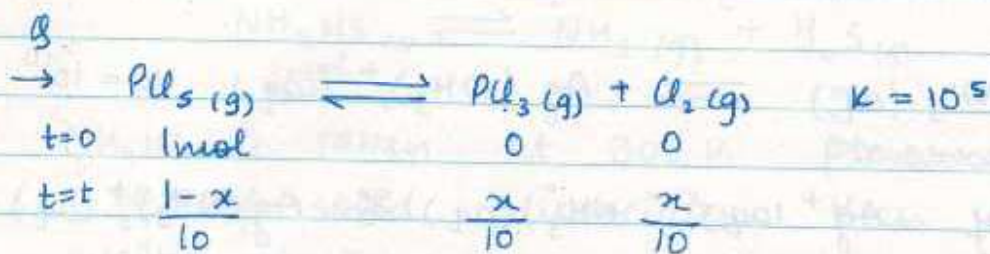 Q
→ PCl₅ (g) ⇌ PCl₃ (g) + Cl₂ (g) K = 10⁵
t=0 1mol 0 0
t=t (1-x)/10 x/10 x/10